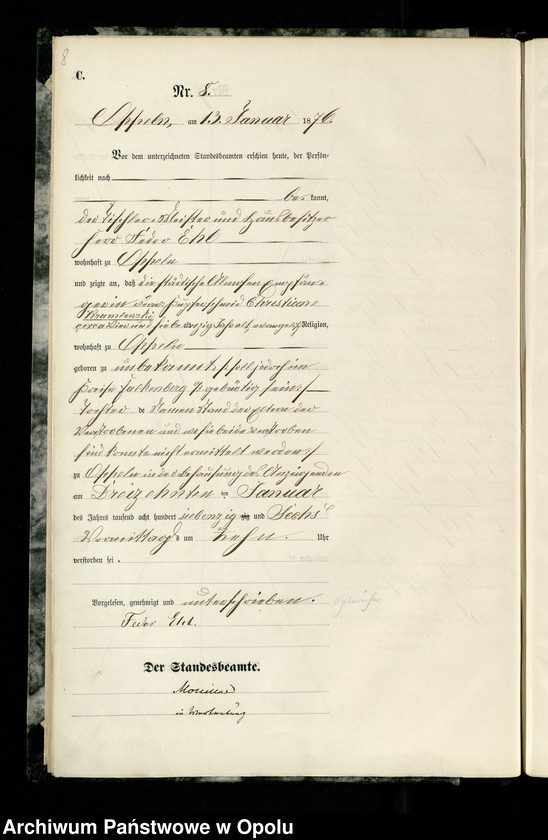 8
C.
Nr. 8.
Oppeln, am 13. Januar 1876.
Vor dem unterzeichneten Standesbeamten erschien heute, der Persön-
lichkeit nach
be kannt,
der Tischler-Meister und Hausbesitzer
Herr Fedor Ehl
wohnhaft zu Oppeln
und zeigte an, daß die städtische Almosen Empfän-
gerin verw. Kupferschmid Christiane
circa vier und siebenzig Jahr alt, evangel. Religion,
wohnhaft zu Oppeln
geboren zu unbekannt /: soll jedoch im
Kreise Falkenberg O/S gebürtig sein :/
Tochter der Namen Stand der Eltern der
Verstorbenen und wo sie beide verstorben
sind konnte nicht ermittelt werden :/
zu Oppeln in der Behausung des Anzeigenden
am Dreizehnten ten Januar
des Jahres tausend acht hundert siebenzig zig und Sechs
Vormittags um Zehn Uhr
verstorben sei.
Vorgelesen, genehmigt und unterschrieben.
Fedor Ehl.
Der Standesbeamte.
in Vertretung
Archiwum Państwowe w Opolu